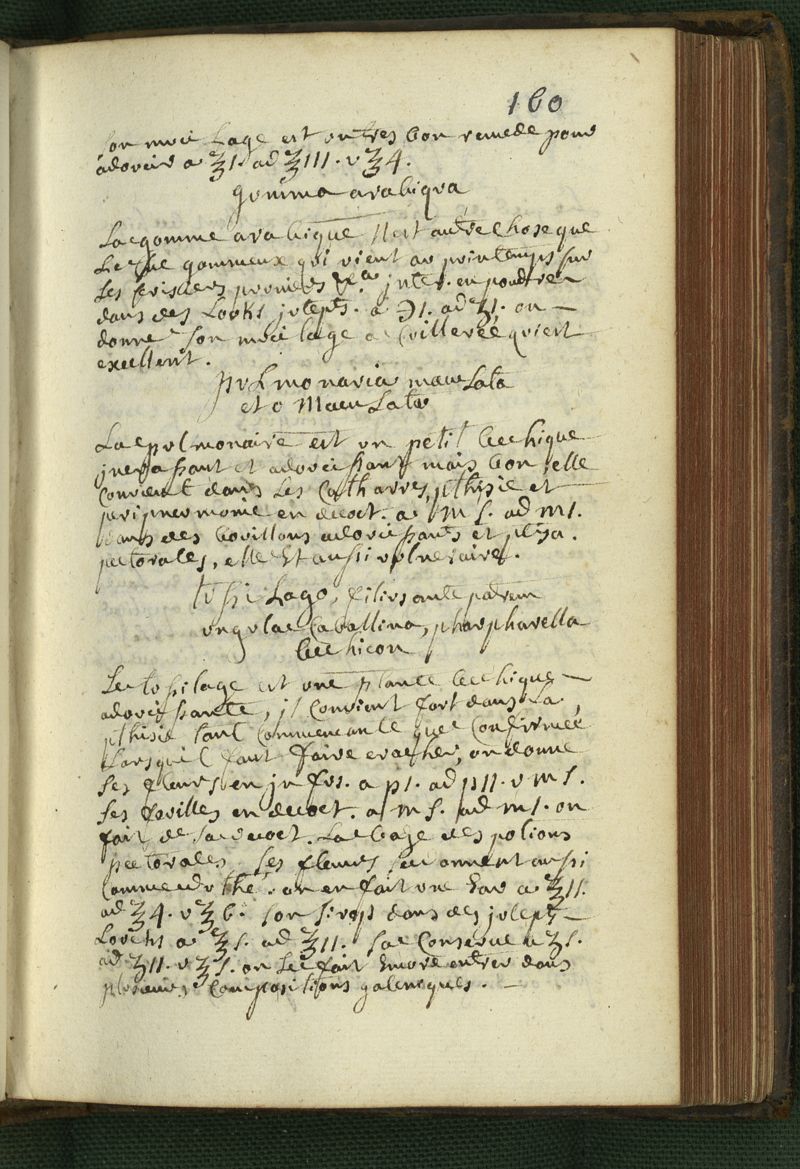 160
son muci lage est un tres bon remede pour
adoucir a ʒ1. ad ʒ111. v ʒ4.
gomma arabiqua
La gomme arabique n'est autre chose que
Le suc gommeux qui vient au printemps sur
Les
dans des Looks juleps. a ℈1. ad ʒ1. on —
donne son muci lage a Cvilleree qui est
excellent.
pvLmonaria macuLata
et o MacuLata
La pvlmonaire est un petit bechique
et adoucissant mais bon elle
convient dans Les Catharres, pthisie et
peripneumonie en decoct. a m s. ad m1.
dans des bovillons adovcissants et ptisa.
pectorales, elle Est aussi vvlneraire.
tvssiLago, filivs ante patrem
vngvla Caballina, pharpharella
bechicon
Le tossilage est une plante bechique —
adovcissante, jl convient fort dans La
pthisie tant commencante que confirmée
Lorsqu'il faut faire cracher, on donne
ses fleurs en jnfvs. a p1. ad p11. v m s.
ses fevilles en decoct. a m s. ad m1. on
fait de sa decoct. La baze des potions
pectorales. ses fleurs se donnent aussi
comme du thé. on en fait une Eau a ʒ11.
ad ʒ4. v ʒ6. son sirop dans des juleps —
Loochs a ʒs. ad ʒ11. sa Conserve a ʒs.
ad ʒ11. v ʒs. on Le fait Encore entrer dans
plusieurs Compositions galeniques. —